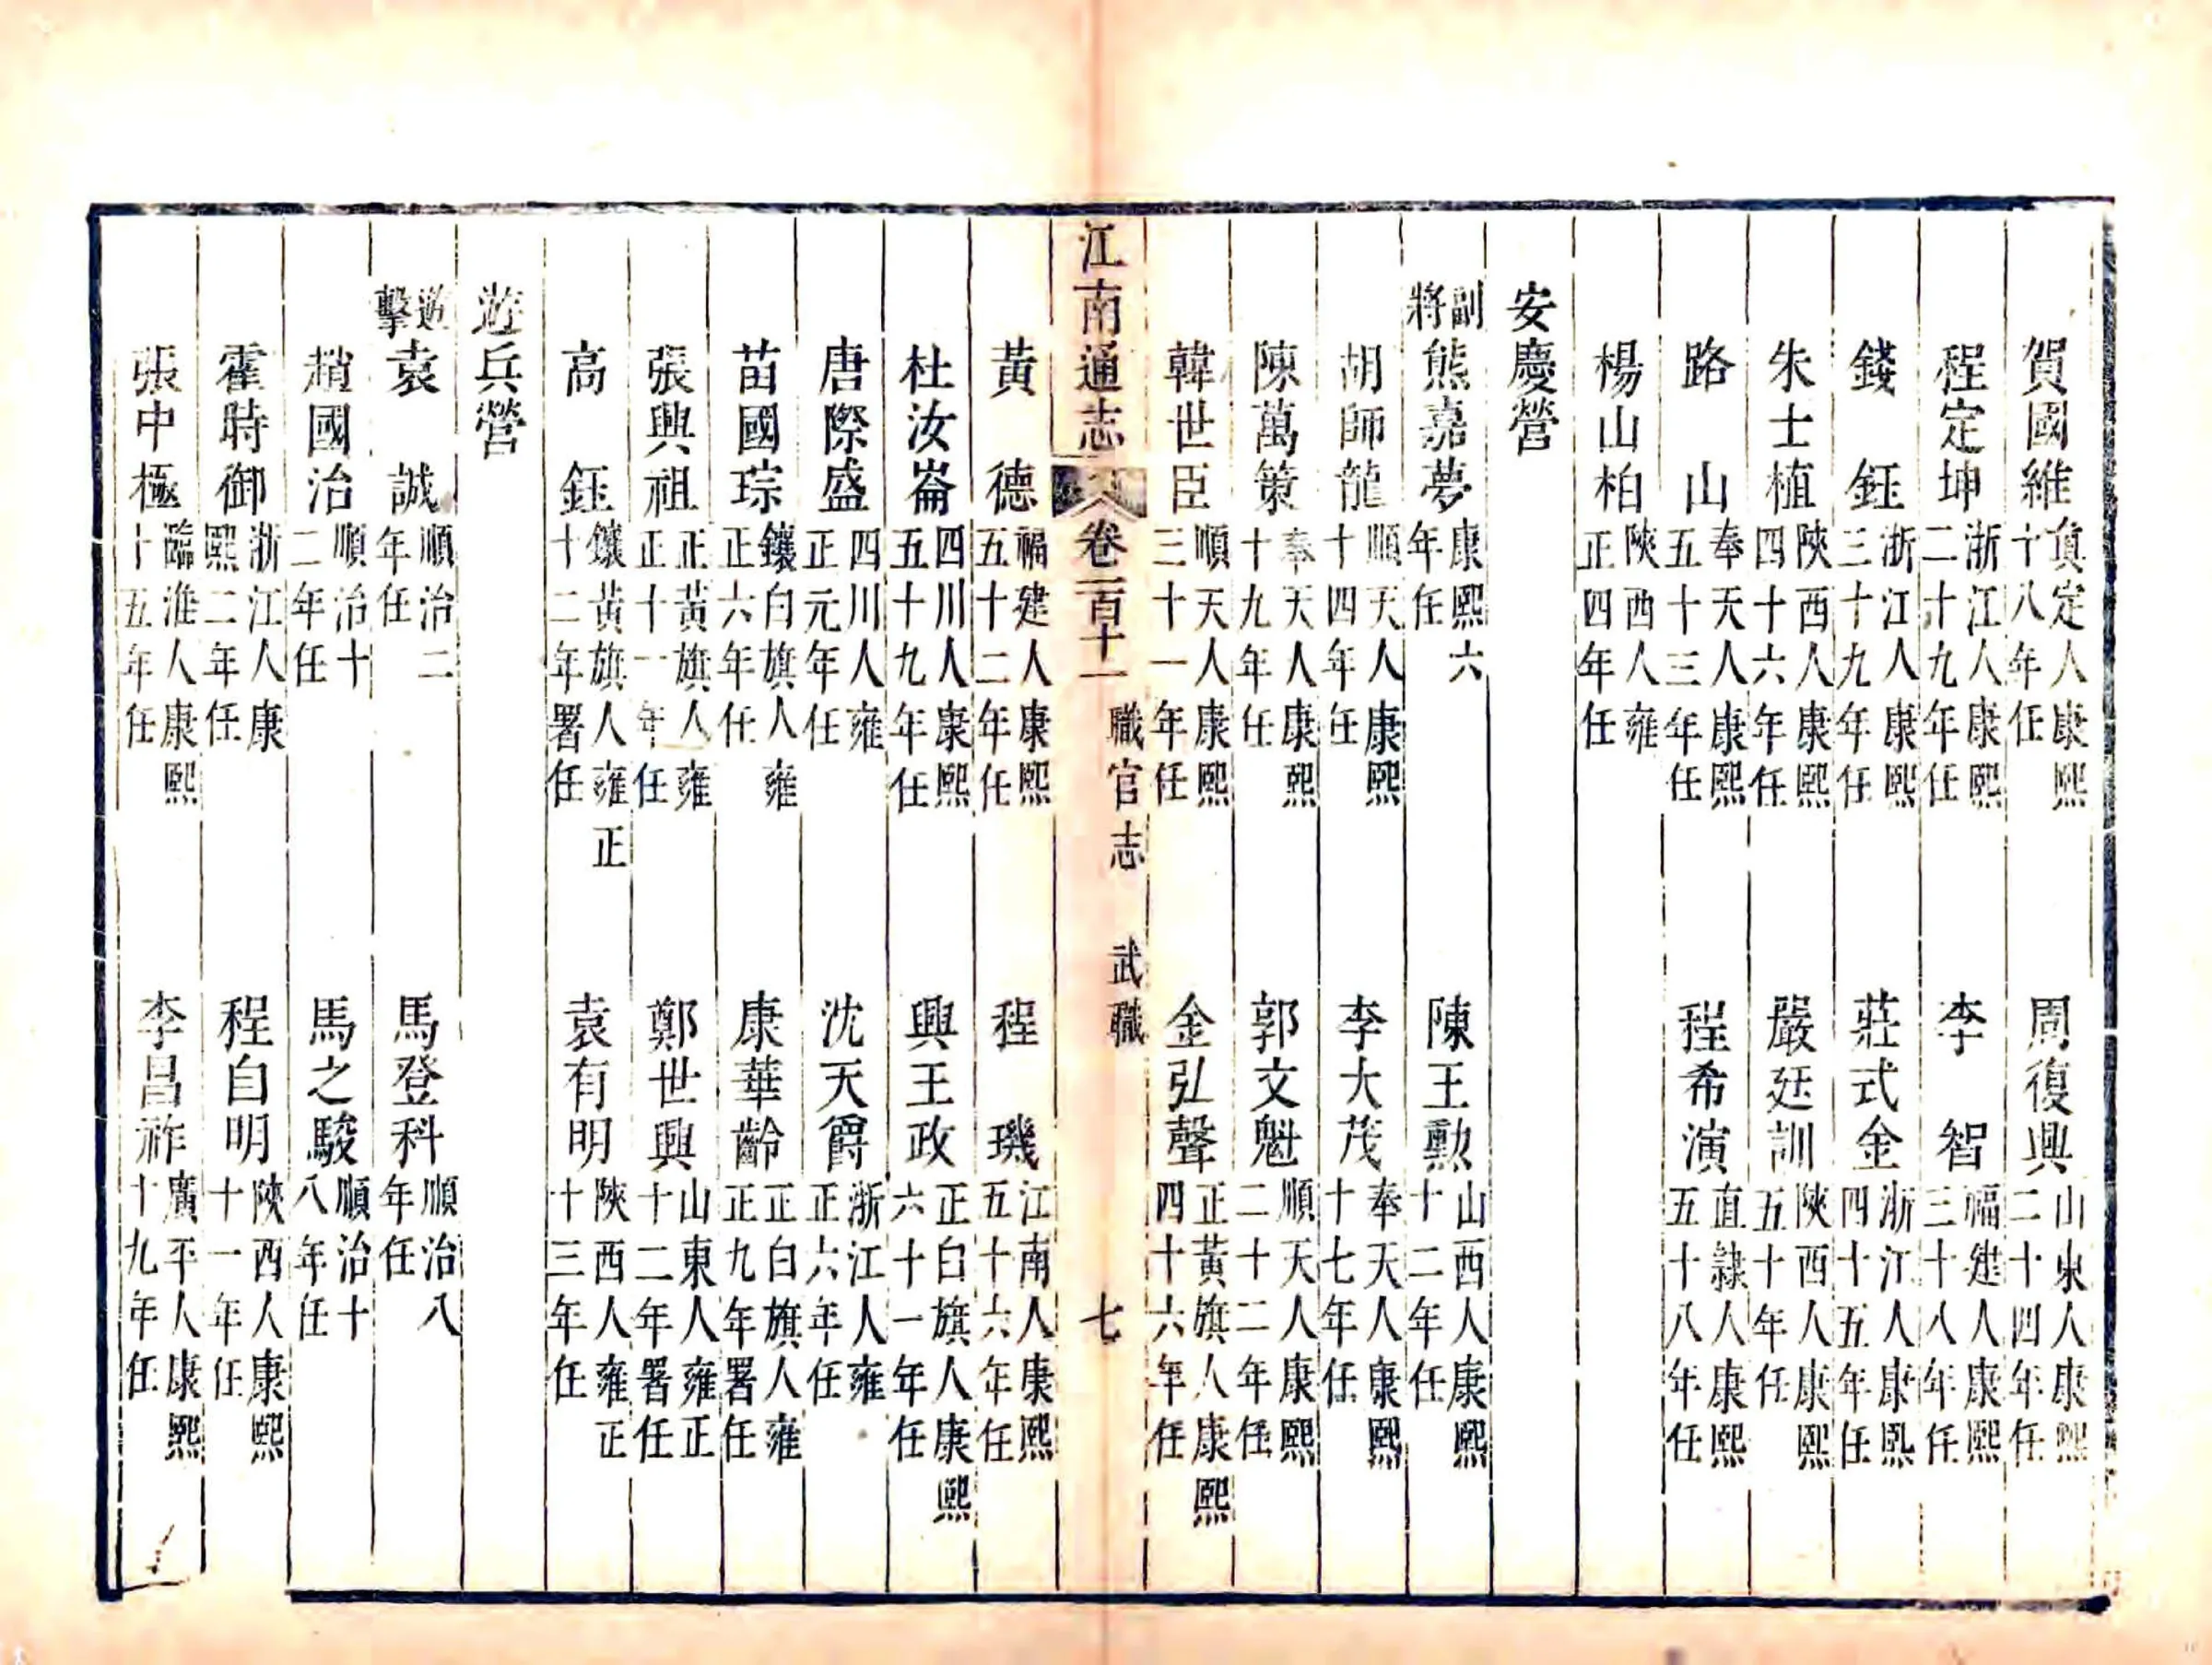 賀國維真定人康熙十八年任　周復興山東人康熙二十四年任
程定坤浙江人康熙二十九年任　李智福建人康熙三十八年任
錢鈺浙江人康熙三十九年任　莊式金浙江人康熙四十五年任
朱士植陝西人康熙四十六年任　嚴廷訓陝西人康熙五十年任
路山奉天人康熙五十三年任　程希演直隷人康熙五十八年任
楊山柏陝西人雍正四年任
安慶營
副將熊嘉夢康熙六年任　陳王勲山西人康熙十二年任
胡師龍順天人康熙十四年任　李大茂奉天人康熙十七年任
陳萬策奉天人康熙十九年任　郭文魁順天人康熙二十二年任
韓世臣順天人康熙三十一年任　金弘聲正黃旗人康熙四十六年任
江南通志　卷一百十一　職官志　武職　七
黃德福建人康熙五十二年任　程璣江南人康熙五十六年任
杜汝崙四川人康熙五十九年任　興王政正白旗人康熙六十一年任
唐際盛四川人雍正元年任　沈天爵浙江人雍正六年任
苗國琮鑲白旗人雍正六年任　康華齡正白旗人雍正九年署任
張興祖正黃旗人雍正十一年任　鄭世興山東人雍正十二年署任
高鈺鑲黃旗人雍正十二年署任　袁有明陝西人雍正十三年任
遊兵營
遊擊袁誠順治二年任　馬登科順治八年任
趙國治順治十二年任　馬之駿順治十八年任
霍時御浙江人康熙二年任　程自明陝西人康熙十一年任
張中極臨淮人康熙十五年任　李昌祚廣平人康熙十九年任